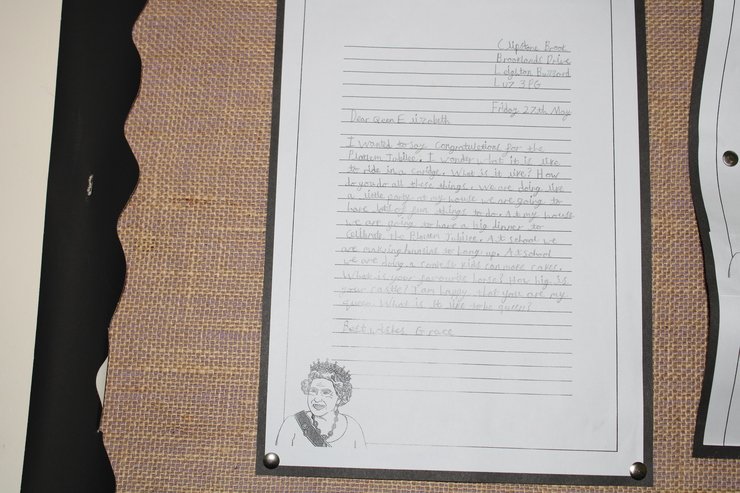 Clipstone Brook
Brooklands Drive
Leighton Buzzard
LU7 3PG
Friday 27th May
Dear Queen Elizabeth
I wanted to say congratulations for the
Platinum Jubilee. I wonder what it is like
to ride in a carage. What is it like? How
do you do all these things. We are doing like
a little party at my house we are going to
have lots of fun things to do. At my house
we are going to have a big dinner to
the Jubilee. At school we
are making to hang up. At school
we are doing a kids can make cakes.
What is your favourite horse? How big is
your castle? I am happy that you are my
queen. What is it like to be queen?
Best wishes Grace